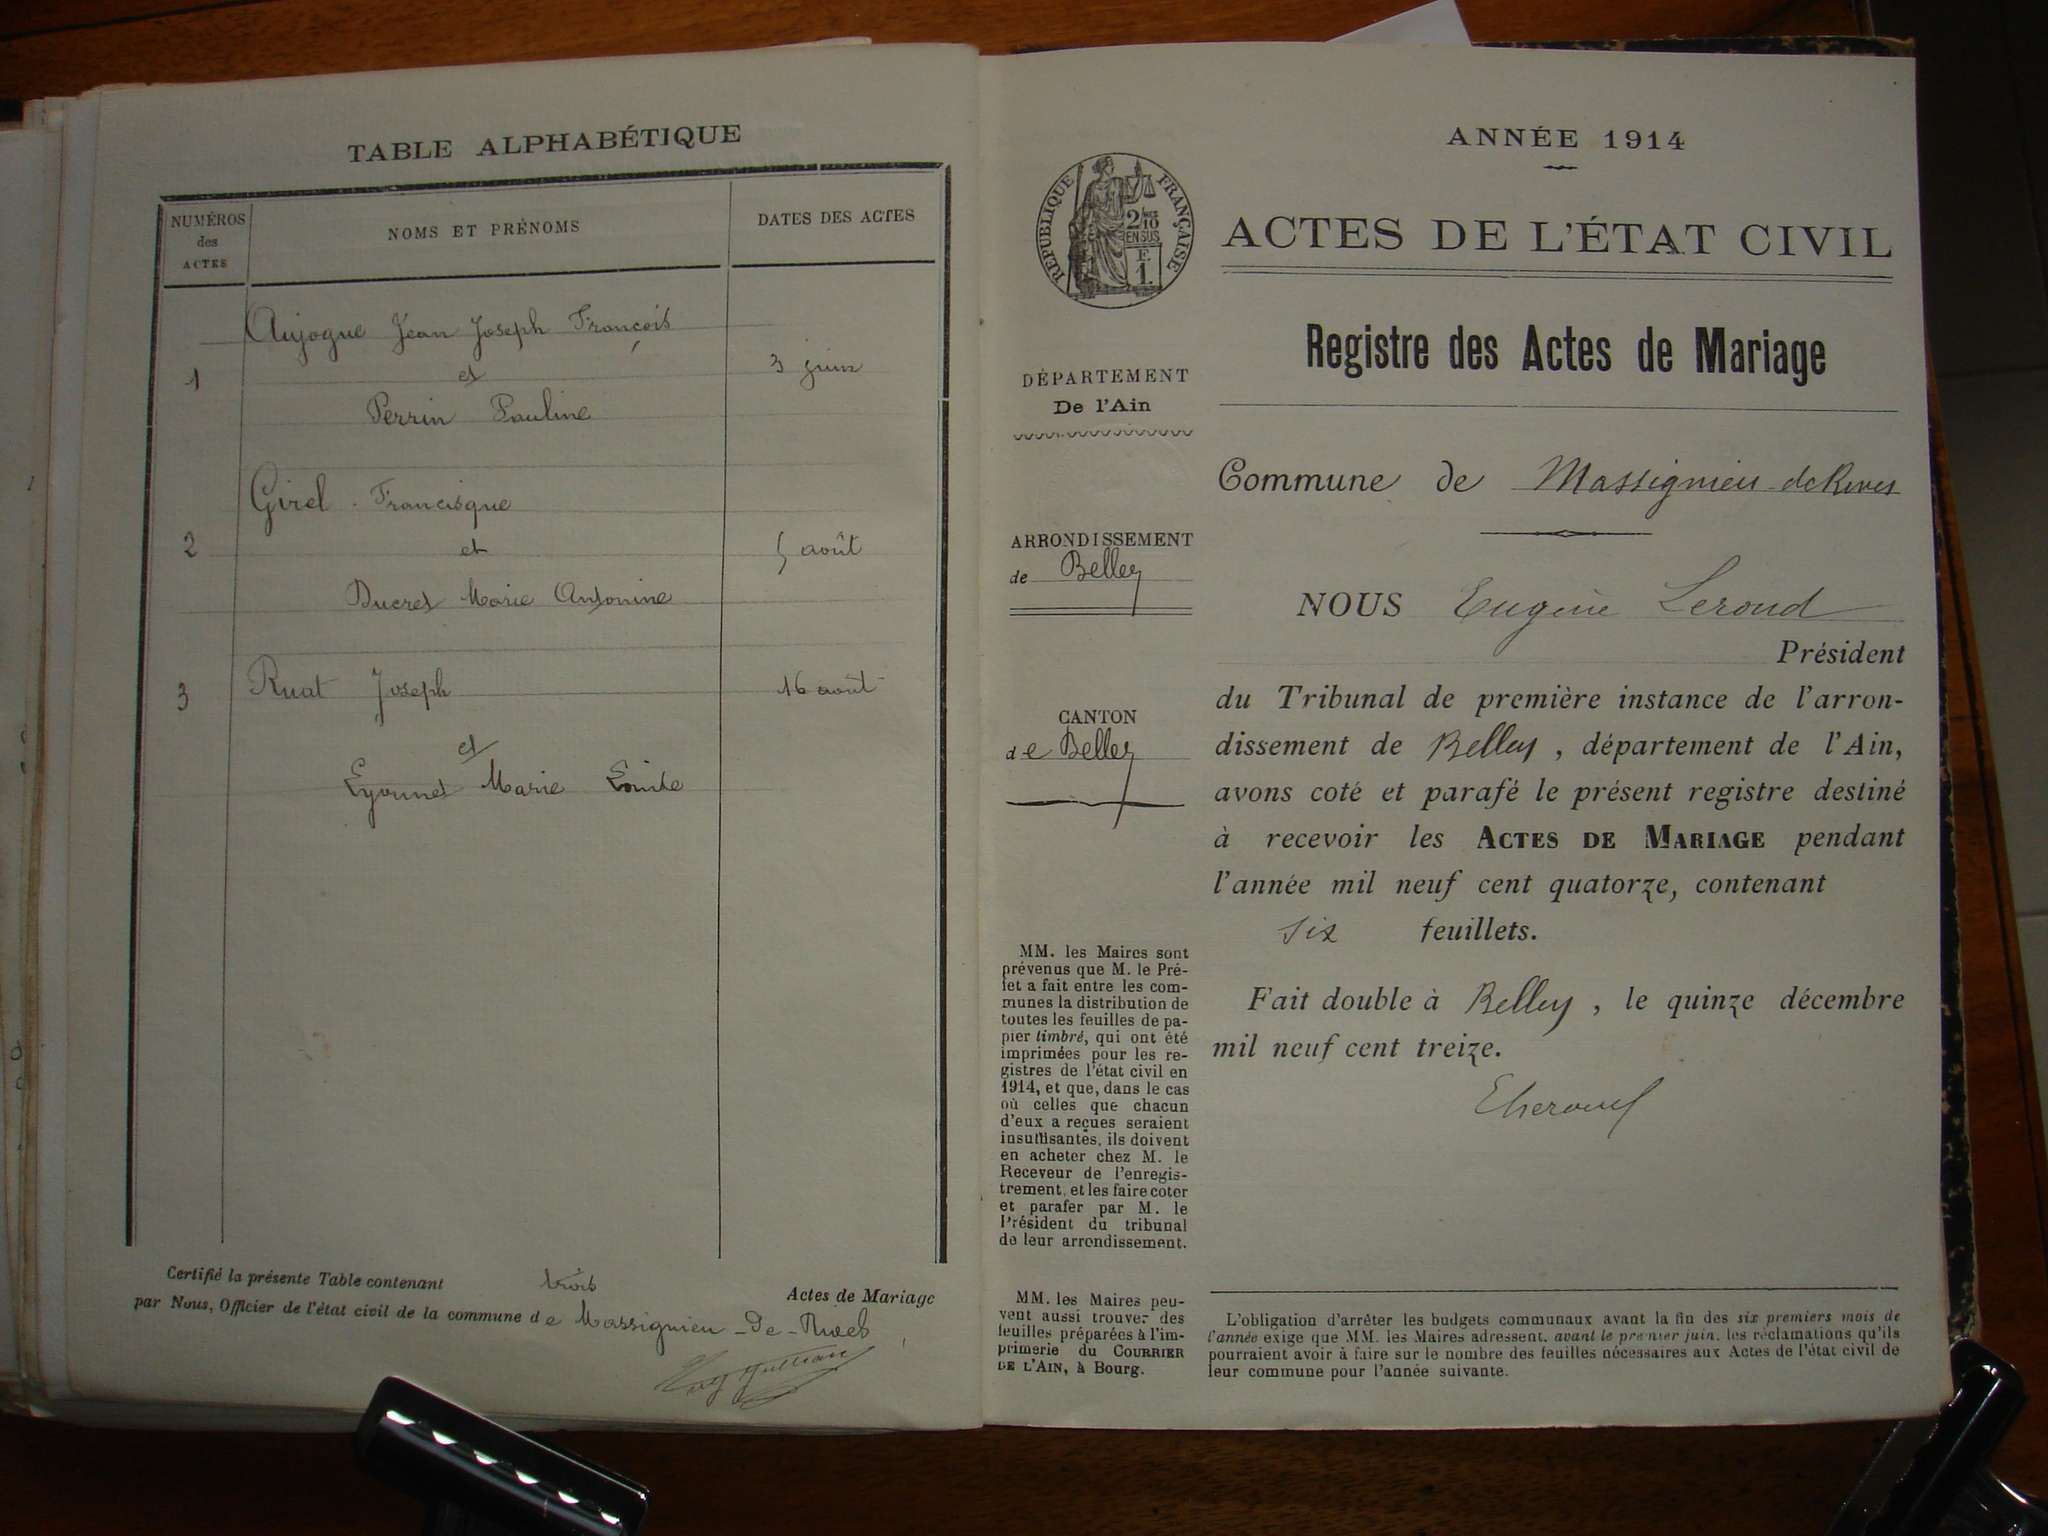 TABLE ALPHABÉTIQUE
NUMÉROS
des
ACTES
NOMS ET PRÉNOMS
DATES DES ACTES
Aujogue Jean Joseph François
1 et 3 juin
Perrin Pauline
Girel Francisque
2 et 5 août
Ducret Marie Antonine
3 Ruat Joseph 16 août
et
Lyonnet Marie Louise
Certifié la présente Table contenant trois Actes de Mariage
par Nous, Officier de l'état civil de la commune de Massignieu-de-Rives
ANNÉE 1914
RÉPUBLIQUE FRANÇAISE
2/10
EN SUS
F.
1.
ACTES DE L'ÉTAT CIVIL
Registre des Actes de Mariage
DÉPARTEMENT
De l'Ain
Commune de Massignieu de Rives
ARRONDISSEMENT
de Belley
NOUS Eugène Leroud
Président
CANTON
de Belley
du Tribunal de première instance de l'arron-
dissement de Belley, département de l'Ain,
avons coté et parafé le présent registre destiné
à recevoir les ACTES DE MARIAGE pendant
l'année mil neuf cent quatorze, contenant
six feuillets.
Fait double à Belley, le quinze décembre
mil neuf cent treize.
MM. les Maires sont
prévenus que M. le Pré-
fet a fait entre les com-
munes la distribution de
toutes les feuilles de pa-
pier timbré, qui ont été
imprimées pour les re-
gistres de l'état civil en
1914, et que, dans le cas
où celles que chacun
d'eux a reçues seraient
insuffisantes, ils doivent
en acheter chez M. le
Receveur de l'enregis-
trement, et les faire coter
et parafer par M. le
Président du tribunal
de leur arrondissement.
MM. les Maires peu-
vent aussi trouver des
feuilles préparées à l'im-
primerie du COURRIER
DE L'AIN, à Bourg.
L'obligation d'arrêter les budgets communaux avant la fin des six premiers mois de
l'année exige que MM. les Maires adressent, avant le premier juin, les réclamations qu'ils
pourraient avoir à faire sur le nombre des feuilles nécessaires aux Actes de l'état civil de
leur commune pour l'année suivante.